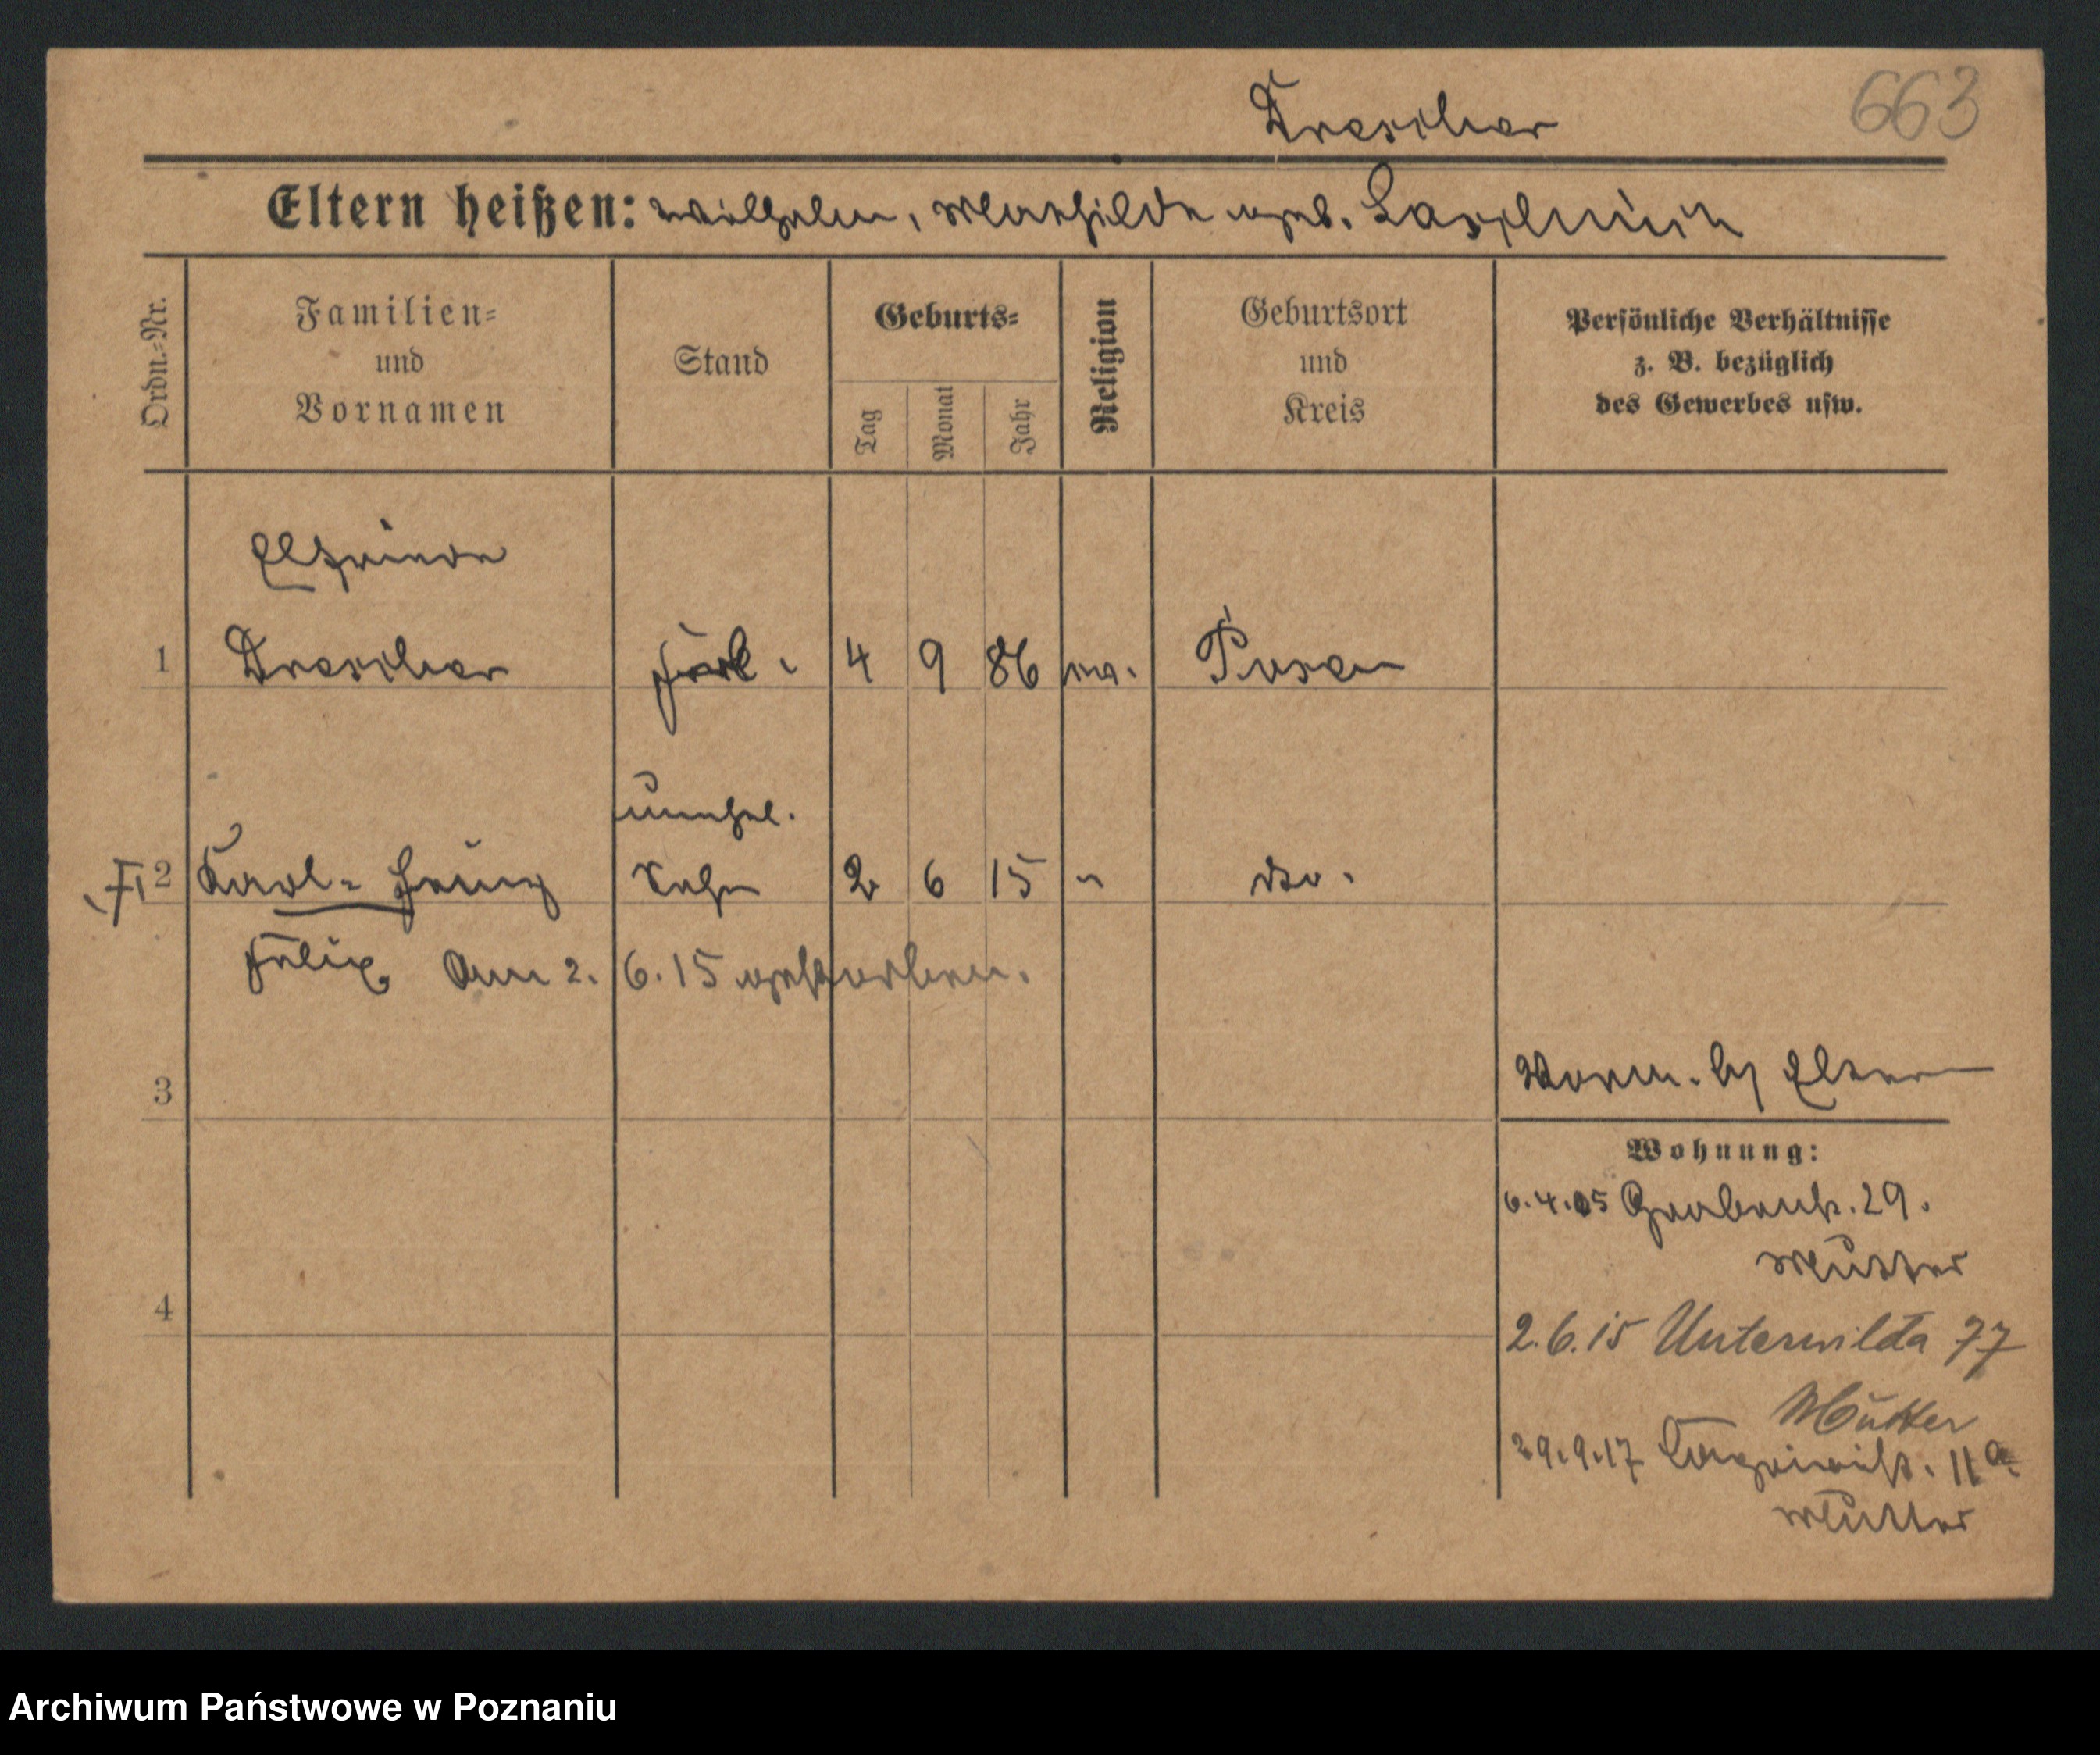 Drescher
663
Eltern heißen: Wilhelm, Mathilde geb.
Ordn.-Nr.
Familien-
und
Vornamen
Stand
Geburts-
Tag
Monat
Jahr
Religion
Geburtsort
und
Kreis
Persönliche Verhältnisse
z. B. bezüglich
des Gewerbes usw.
Elfriede
1 Drescher Frl. 4 9 86 ev. Posen
unehel.
2 Karl-Heinz Sohn 2 6 15 " do.
Felix Am 2. 6. 15 gestorben.
3
Vorm. bei Eltern
Wohnung:
6.4.05 Grabenstr. 29.
Mutter
4
2.6.15 Unterwilda 77
Mutter
29.9.17 11a
Mutter